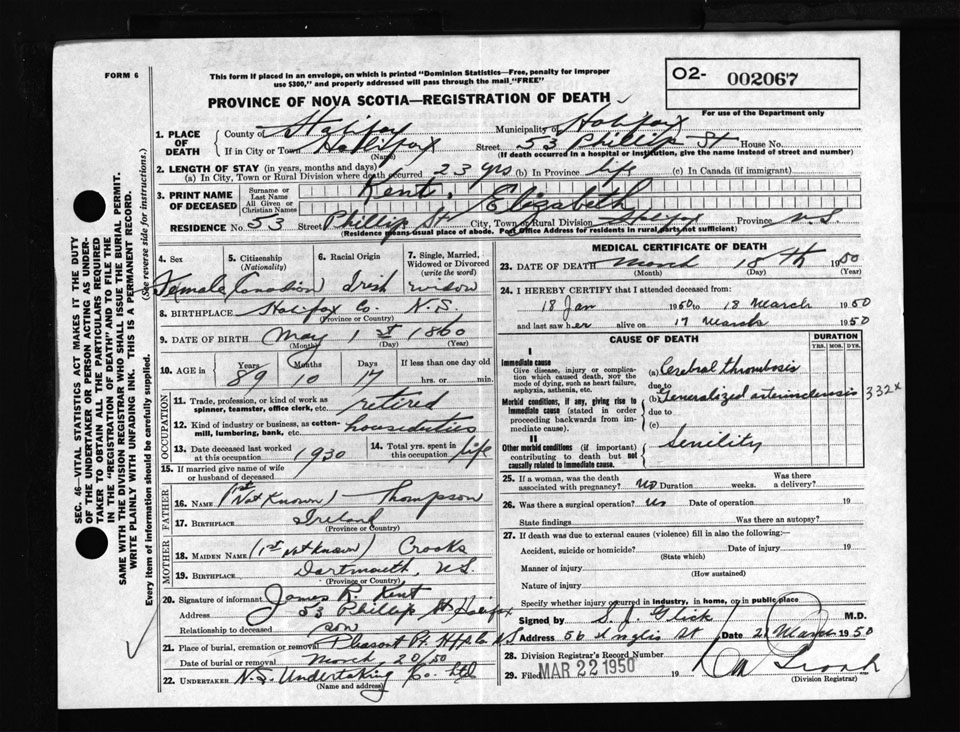 FORM 6
This form if placed in an envelope, on which is printed "Dominion Statistics—Free, penalty for improper
use $300," and properly addressed will pass through the mail "FREE"
O2- 002067
PROVINCE OF NOVA SCOTIA—REGISTRATION OF DEATH
For use of the Department only
1. PLACE OF DEATH County of Halifax Municipality of Halifax
If in City or Town Halifax (Name) Street 53 Phillip St House No.
(If death occurred in a hospital or institution, give the name instead of street and number)
2. LENGTH OF STAY (in years, months and days)
(a) In City, Town or Rural Division where death occurred 23 yrs (b) In Province life (c) In Canada (if immigrant)
3. PRINT NAME OF DECEASED Surname or Last Name Kent,
All Given or Christian Names Elizabeth
RESIDENCE No. 53 Street Phillip St City, Town or Rural Division Halifax Province N.S.
(Residence means usual place of abode. Post Office Address for residents in rural parts not sufficient)
4. Sex 5. Citizenship (Nationality) 6. Racial Origin 7. Single, Married, Widowed or Divorced (write the word)
Female Canadian Irish
8. BIRTHPLACE Halifax Co. N.S.
(Province or Country)
9. DATE OF BIRTH May 1st 1860
(Month) (Day) (Year)
10. AGE in Years Months Days If less than one day old
89 10 17 hrs. or min.
OCCUPATION
11. Trade, profession, or kind of work as spinner, teamster, office clerk, etc. retired
12. Kind of industry or business, as cotton-mill, lumbering, bank, etc. houseduties
13. Date deceased last worked at this occupation 1930 14. Total yrs. spent in this occupation life
15. If married give name of wife or husband of deceased
FATHER
16. NAME (1st Not Known) Thompson
17. BIRTHPLACE Ireland
(Province or Country)
MOTHER
18. MAIDEN NAME (1st Not Known) Crooks
19. BIRTHPLACE Dartmouth, N.S.
(Province or Country)
20. Signature of informant James R. Kent
Address 53 Phillip St Halifax
Relationship to deceased son
21. Place of burial, cremation or removal Pleasant
Date of burial or removal March 20/50
22. UNDERTAKER N.S. Undertaking Co. Ltd
(Name and address)
MEDICAL CERTIFICATE OF DEATH
23. DATE OF DEATH March 18th 1950
(Month) (Day) (Year)
24. I HEREBY CERTIFY that I attended deceased from:
18 Jan 1950 to 18 March 1950
and last saw her alive on 17 March 1950
CAUSE OF DEATH DURATION
YRS. MOS. DYS.
I
Immediate cause
Give disease, injury or complication which caused death, not the mode of dying, such as heart failure, asphyxia, asthenia, etc.
(a) Cerebral thrombosis
due to
Morbid conditions, if any, giving rise to immediate cause (stated in order proceeding backwards from immediate cause)
(b) Generalized arteriosclerosis 332x
due to
(c)
II
Other morbid conditions (if important) contributing to death but not causally related to immediate cause.
Senility
25. If a woman, was the death associated with pregnancy? No Duration weeks. Was there a delivery?
26. Was there a surgical operation? No Date of operation 19
State findings Was there an autopsy?
27. If death was due to external causes (violence) fill in also the following:—
Accident, suicide or homicide? Date of injury 19
(State which)
Manner of injury
(How sustained)
Nature of injury
Specify whether injury occurred in industry, in home, or in public place
Signed by S. J. Glick M.D.
Address 56 Inglis St Date 21 March 1950
28. Division Registrar's Record Number
29. Filed MAR 22 1950 19
(Division Registrar)
SEC. 46—VITAL STATISTICS ACT MAKES IT THE DUTY
OF THE UNDERTAKER OR PERSON ACTING AS UNDER-
TAKER TO OBTAIN ALL THE PARTICULARS REQUIRED
IN THE "REGISTRATION OF DEATH" AND TO FILE THE
SAME WITH THE DIVISION REGISTRAR WHO SHALL ISSUE THE BURIAL PERMIT.
WRITE PLAINLY WITH UNFADING INK. THIS IS A PERMANENT RECORD.
Every item of information should be carefully supplied. (See reverse side for instructions.)